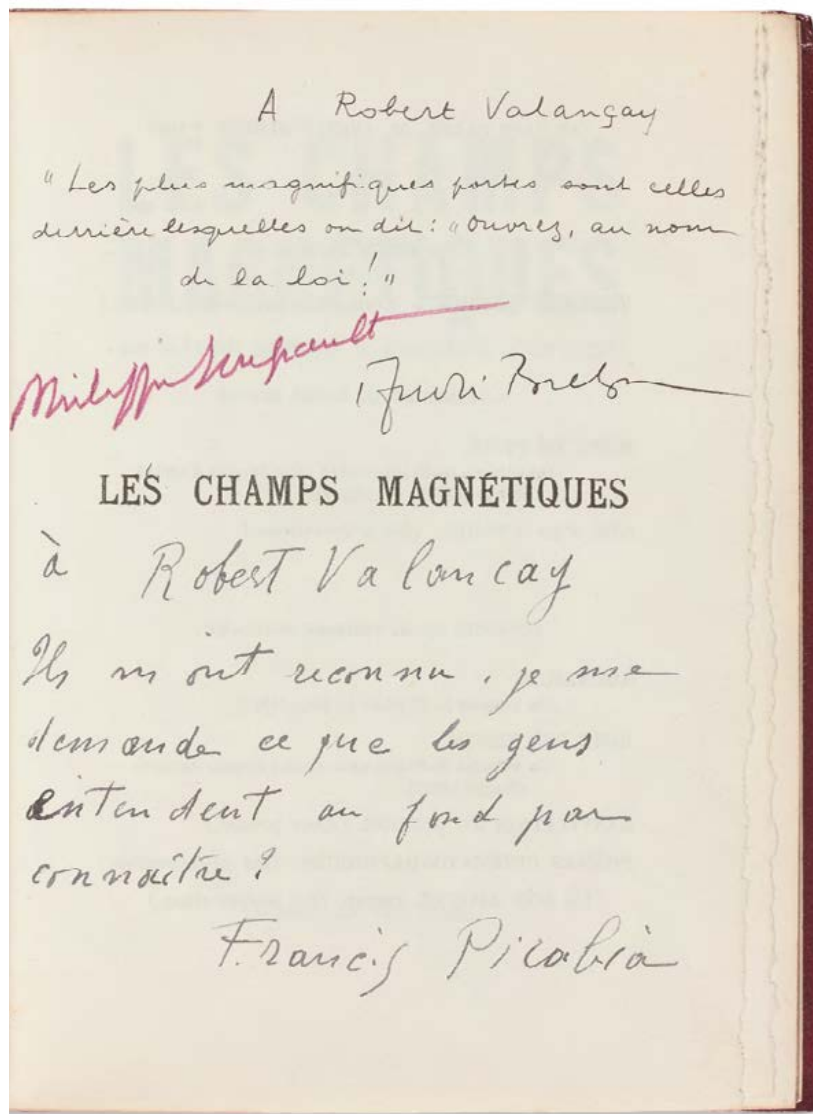 A Robert Valançay
"Les plus magnifiques portes sont celles
derrière lesquelles on dit : "Ouvrez, au nom
de la loi !"
Philippe Soupault
André Breton
LES CHAMPS MAGNÉTIQUES
à Robert Valancay
Ils m ont reconnu, je me
demande ce que les gens
entendent au fond par
connaître ?
Francis Picabia